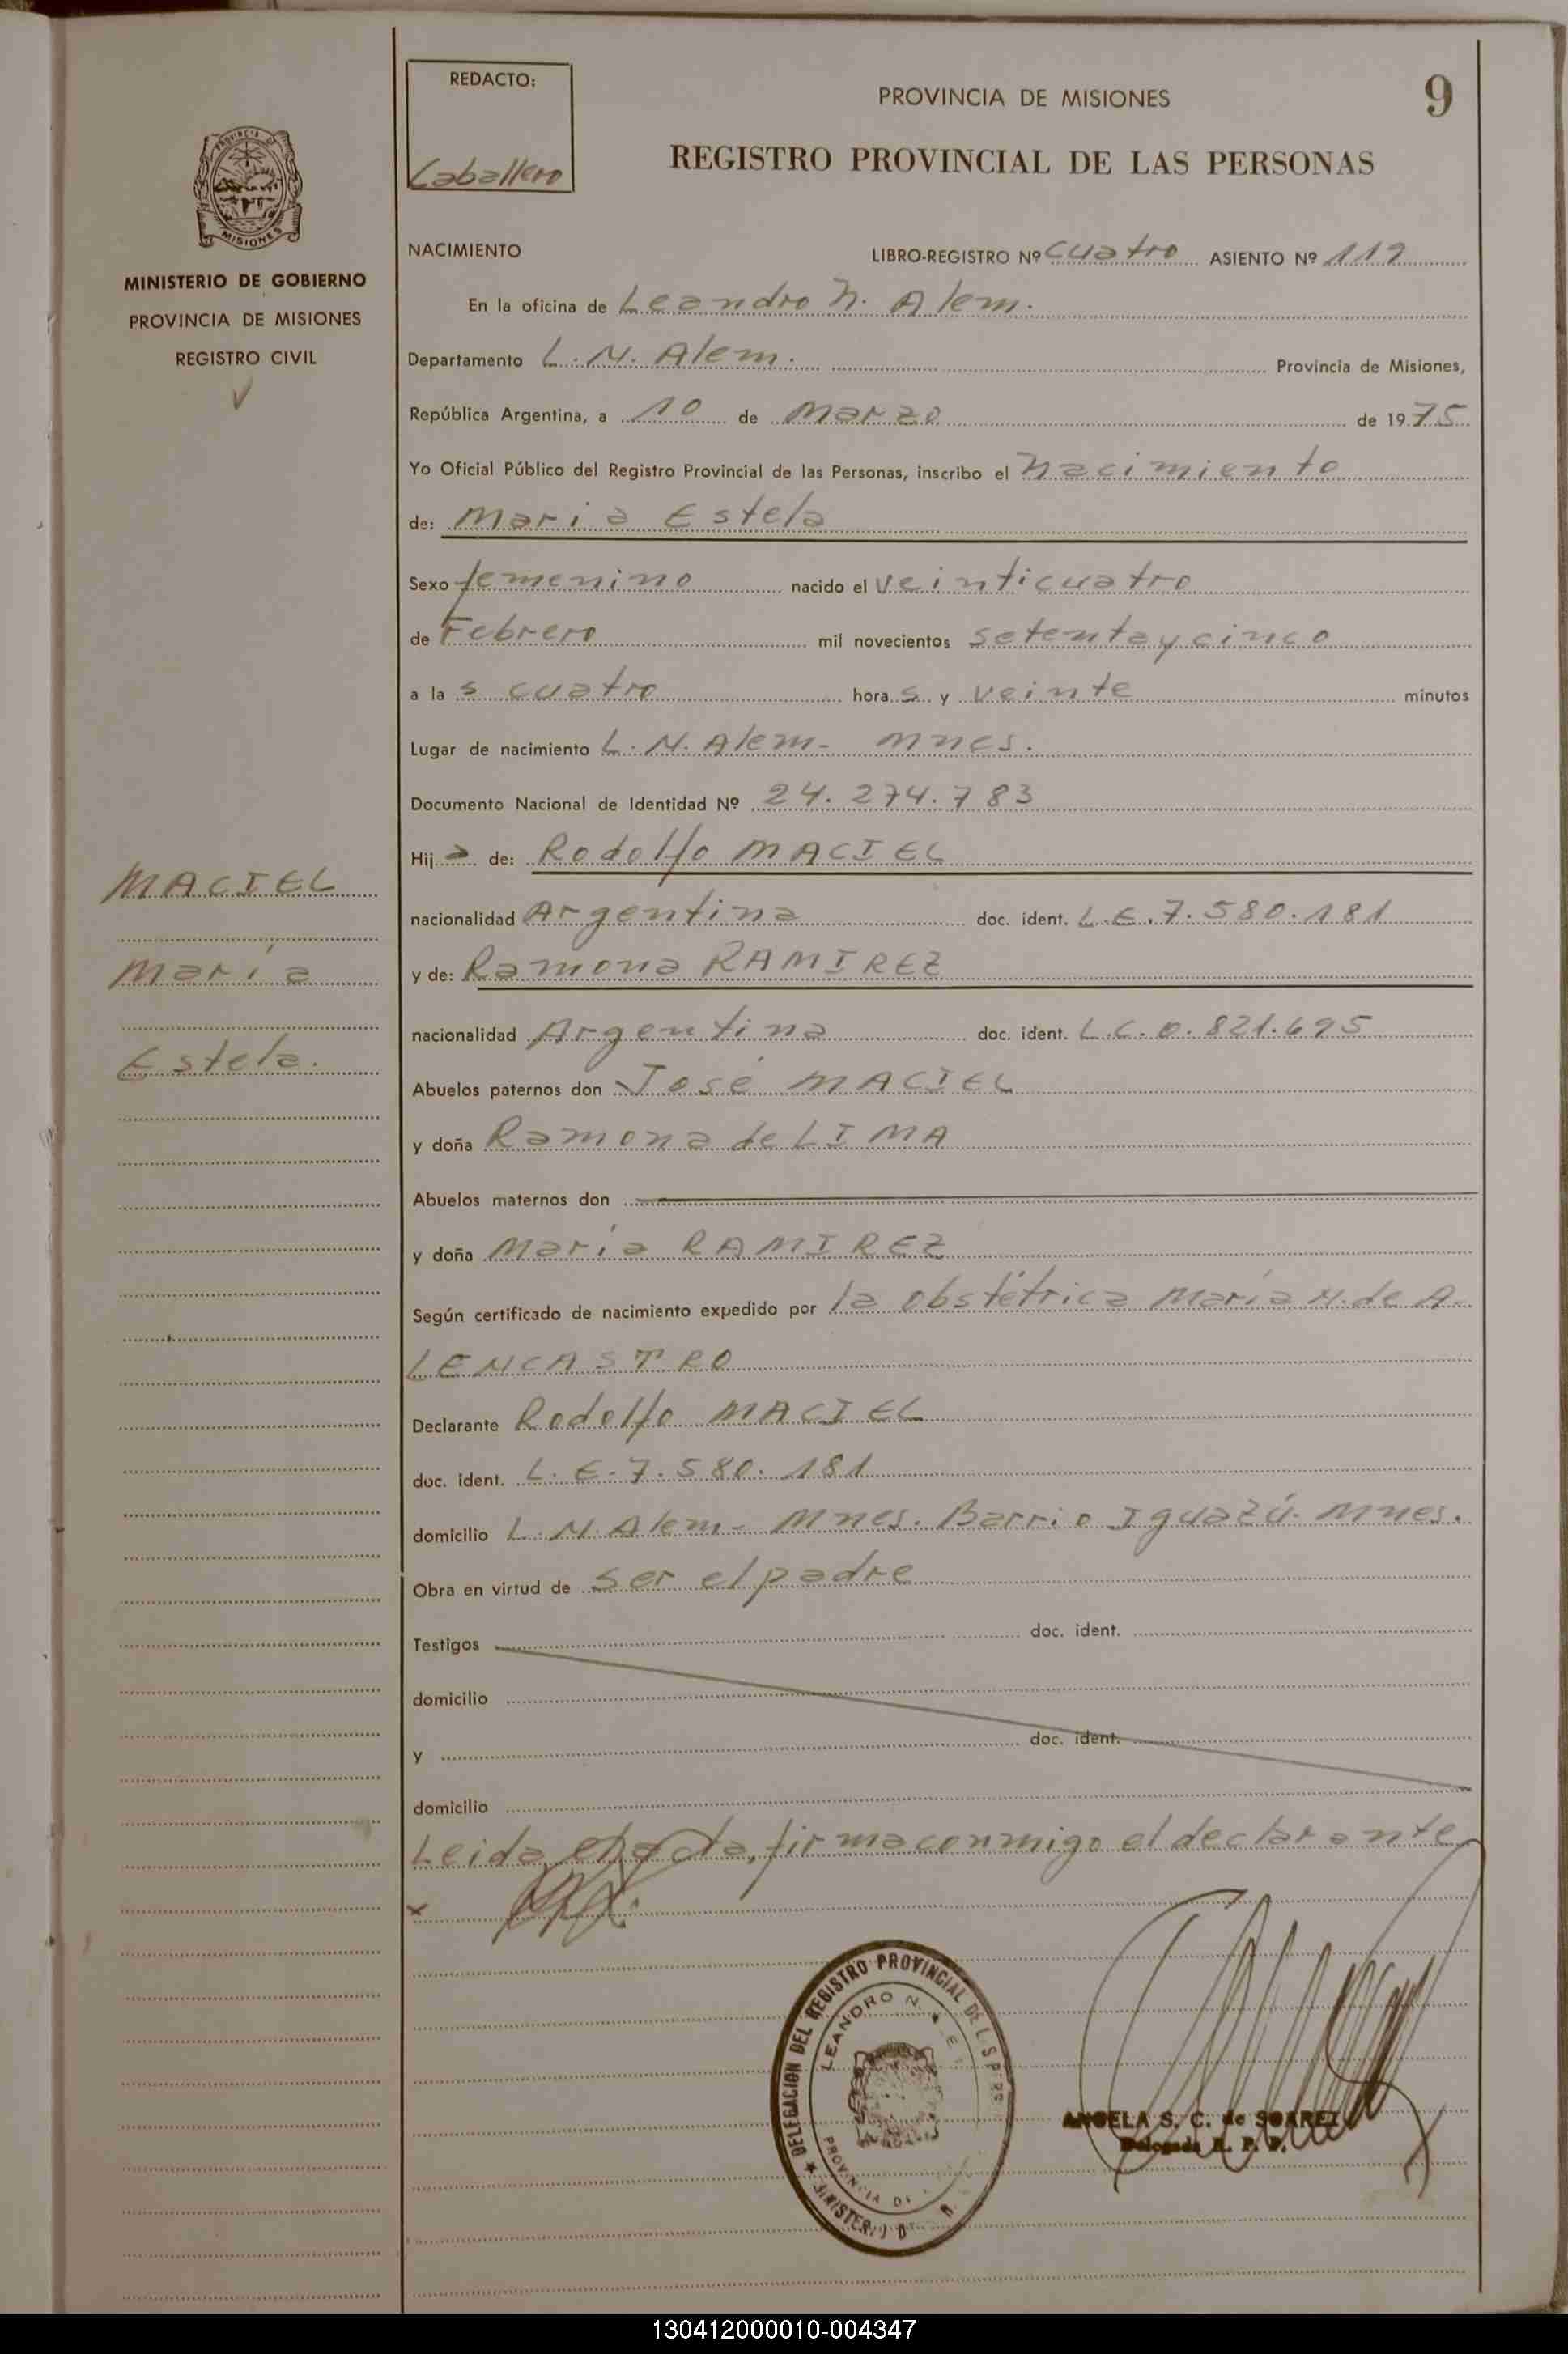 REDACTO:
Caballero
PROVINCIA DE MISIONES
9
REGISTRO PROVINCIAL DE LAS PERSONAS
PROVINCIA DE
MISIONES
MINISTERIO DE GOBIERNO
PROVINCIA DE MISIONES
REGISTRO CIVIL
MACIEL
María
Estela.
NACIMIENTO LIBRO-REGISTRO Nº cuatro ASIENTO Nº 119
En la oficina de Leandro N. Alem.
Departamento L. N. Alem. Provincia de Misiones,
República Argentina, a 10 de Marzo de 1975
Yo Oficial Público del Registro Provincial de las Personas, inscribo el nacimiento
de: Maria Estela
Sexo femenino nacido el veinticuatro
de Febrero mil novecientos setenta y cinco
a las cuatro horas y veinte minutos
Lugar de nacimiento L. N. Alem- Mnes.
Documento Nacional de Identidad Nº 24.274.783
Hija de: Rodolfo MACIEL
nacionalidad Argentina doc. ident. L.E. 7.580.181
y de: Ramona RAMIREZ
nacionalidad Argentina doc. ident. L.C. 0.821.695
Abuelos paternos don José MACIEL
y doña Ramona de LIMA
Abuelos maternos don
y doña María RAMIREZ
Según certificado de nacimiento expedido por la obstétrica María N. de A-
LENCASTRO
Declarante Rodolfo MACIEL
doc. ident. L.E. 7.580.181
domicilio L. N. Alem- Mnes. Barrio Iguazú- Mnes.
Obra en virtud de ser el padre
Testigos doc. ident.
domicilio
y doc. ident.
domicilio
Leida el acta, firma conmigo el declarante
x
DELEGACION DEL REGISTRO PROVINCIAL DE L S PERS
LEANDRO N.
PROVINCIA D
MINISTERIO D
ANGELA S. C. de SUAREZ
Delegada R. P. P.
130412000010-004347